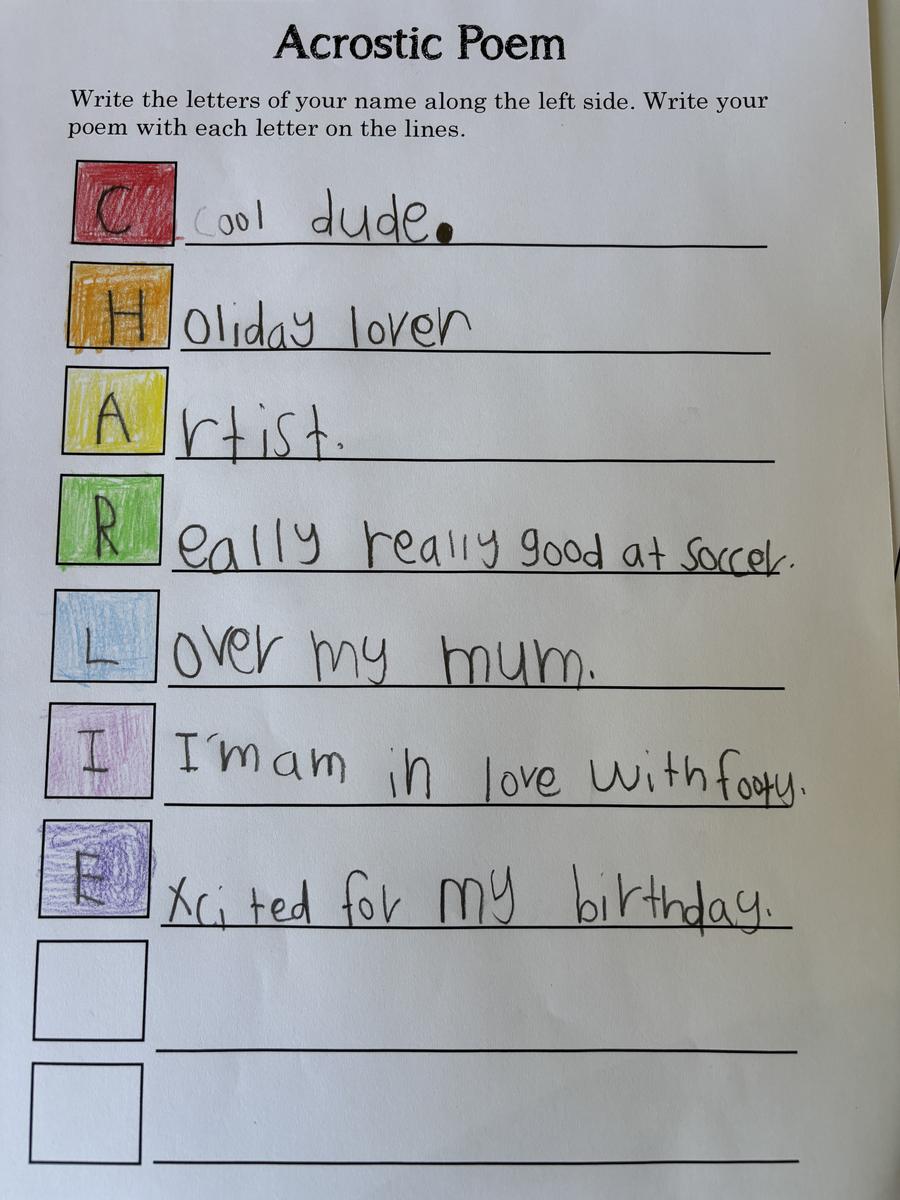 Acrostic Poem
Write the letters of your name along the left side. Write your
poem with each letter on the lines.
C cool dude.
H oliday lover
A rtist.
R eally really good at soccer.
L over my mum.
I I'm am in love with footy.
E xcited for my birthday.